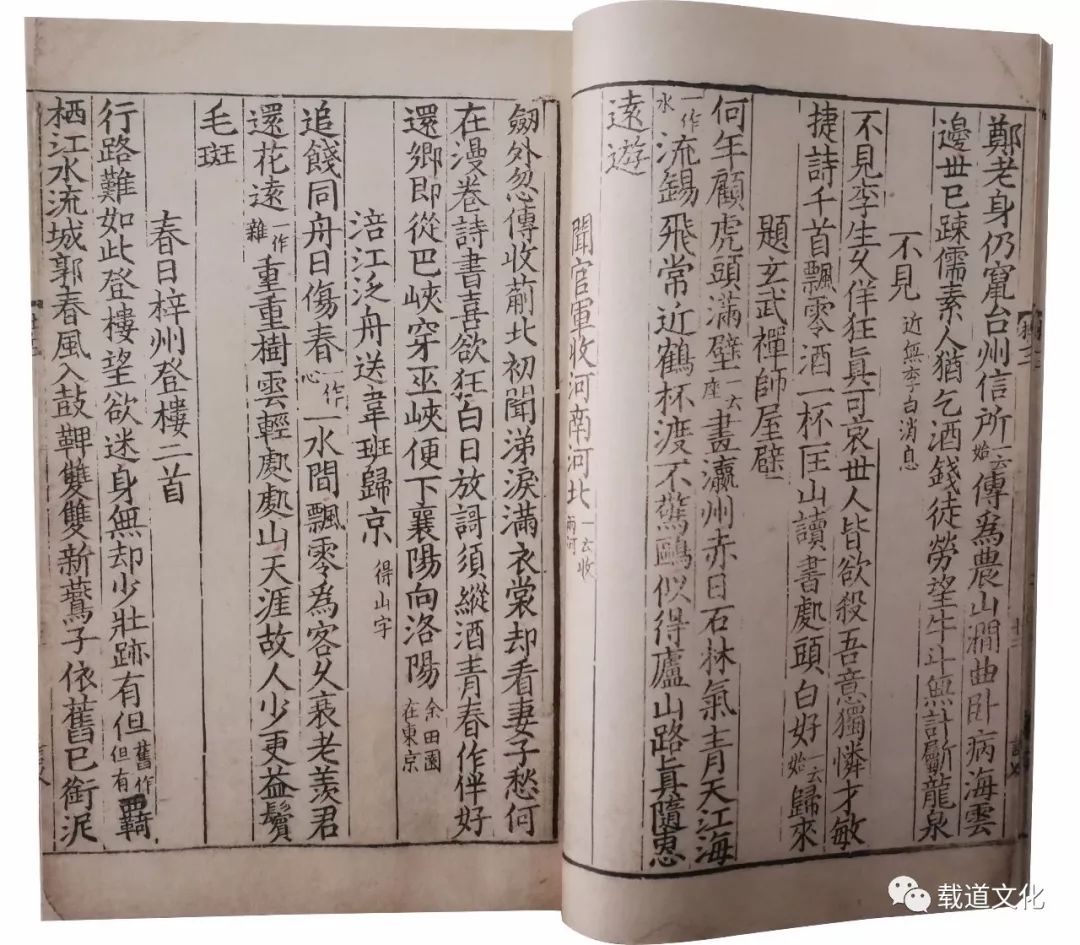 鄭老身仍竄台州信所一云始傳爲農山澗曲卧病海雲
邊世已踈儒素人猶乞酒錢徒勞望牛斗無計斸龍泉
不見近無李白消息
不見李生久佯狂眞可哀世人皆欲殺吾意獨憐才敏
捷詩千首飄零酒一杯匡山讀書處頭白好一云始歸來
題玄武禪師屋壁
何年顧虎頭滿壁一云座畫瀛州赤日石林氣青天江海
一作水流錫飛常近鶴杯渡不驚鷗似得廬山路眞隨惠
遠遊
聞官軍收河南河北一云收兩河
劒外忽傳收薊北初聞涕淚滿衣裳却看妻子愁何
在漫卷詩書喜欲狂白日放謌須縱酒青春作伴好
還鄉即從巴峽穿巫峽便下襄陽向洛陽余田園在東京
涪江泛舟送韋班歸京得山字
追餞同舟日傷春一作心一水間飄零爲客久衰老羨君
還花遠一作雜重重樹雲輕處處山天涯故人少更益鬢
毛斑
春日梓州登樓二首
行路難如此登樓望欲迷身無却少壯跡有但舊作但有羇
栖江水流城郭春風入鼓鞞雙雙新鷰子依舊已銜泥
载道文化